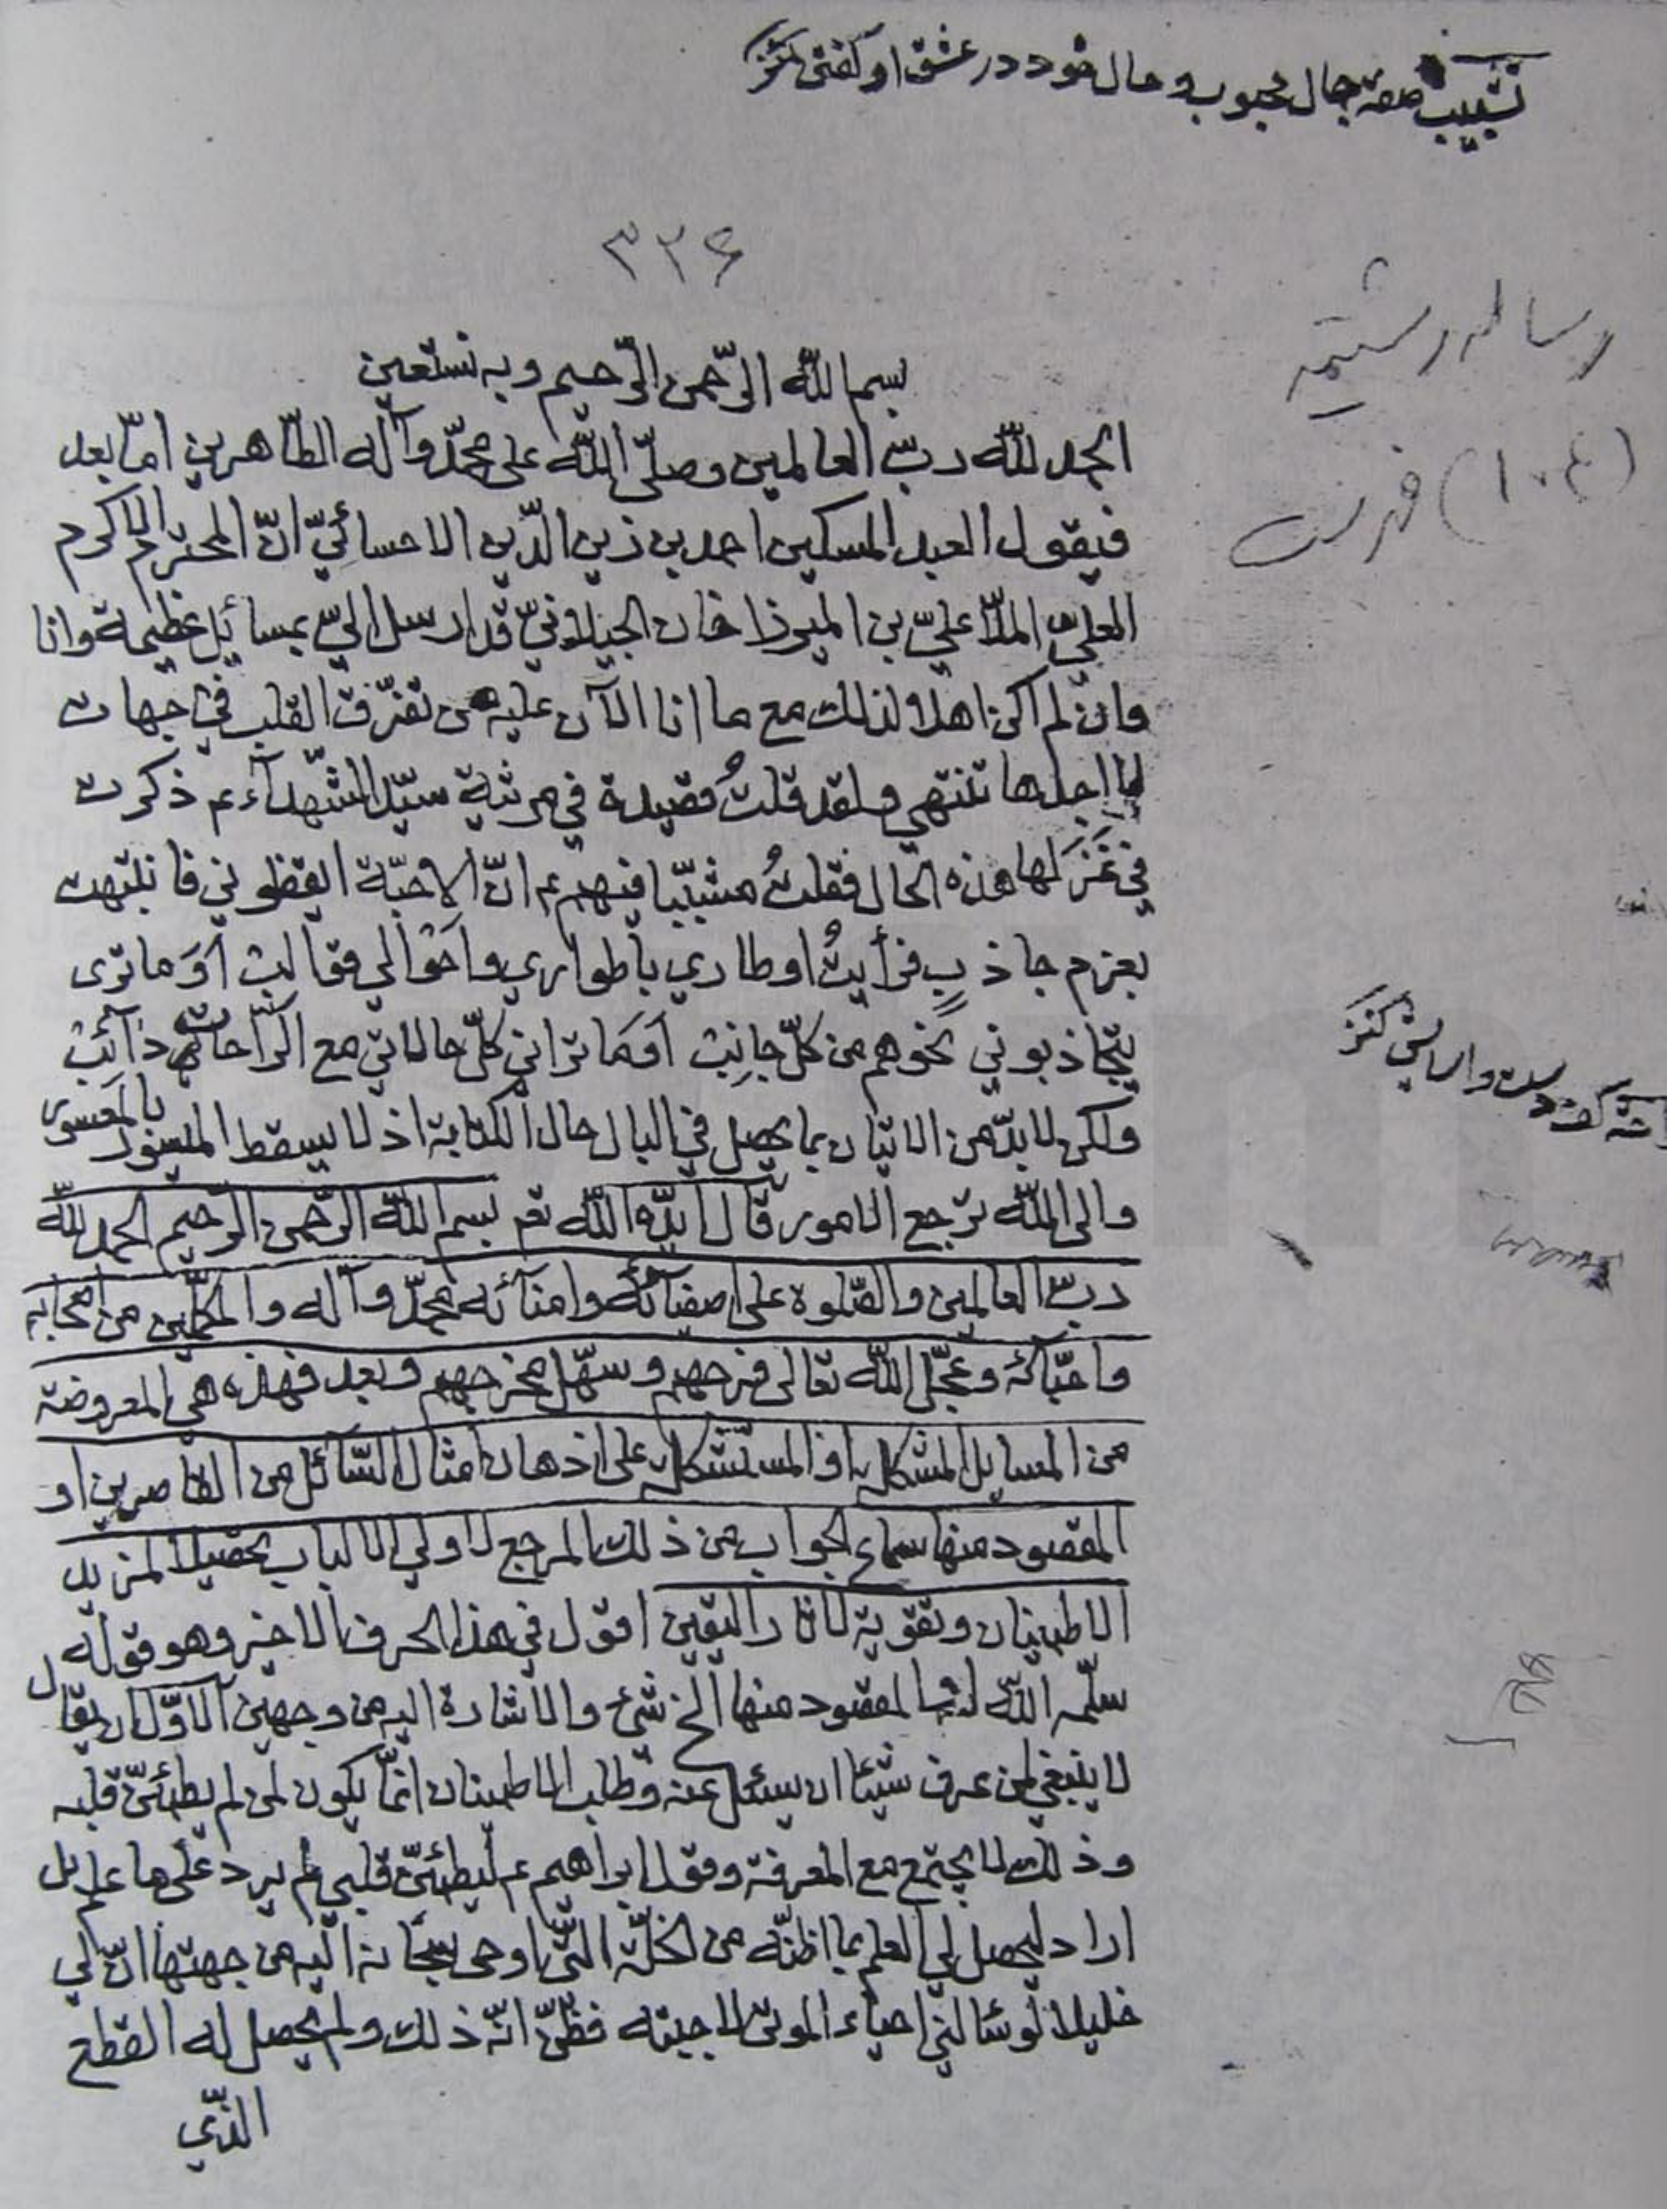 تشبيب صفة جمال محبوب و حال خود در عشق او كفتن كنز
۳۳۶
رساله رشتیه
(۱۰۴) فهرست
بسم الله الرّحمن الرّحيم وبه نستعين
الحمد لله ربّ العالمين وصلّى اللّه على محمّد وآله الطّاهرين امّا بعد
فيقول العبد المسكين احمد بن زين الدّين الاحسائيّ انّ المحترم الاكرم
العليّ الملّا عليّ بن الميرزا خان الجيلانيّ قد ارسل اليّ بمسائل عظيمة وانا
وان لم اكن اهلا لذلك مع ما انا الآن عليه من تفرّق القلب في جهات
لا اجلها تنتهي ولقد قلتُ قصيدة في مرثية سيّد الشّهدآء ع ذكرت
في غَزَلها هذه الحال فقلتُ مشبّبا فيهم ع انّ الاحبّة ايقظوني فانتبهت
بعزم جاذبٍ فرأيتُ اوطاري باطواري واحَوالي فقالت أوَ ما ترى
يتجاذبوني نحوهم من كلّ جانِبْ اوَمَا تراني كلّ حالاتي مع الرّاحات ذآئبْ
ولكن لا بدّ من الاتيان بما يحصل في البال حال الكتابة اذ لا يسقط الميسور بالمعسور
والى اللّه ترجع الامور قال ايّده اللّه تع بسم اللّه الرّحمن الرّحيم الحمد للّه
ربّ العالمين والصّلوة على اصفيآئه وامنآئه محمّد وآله والمكمّلين من اصحابه
واحبّائه وعجّل اللّه تعالى فرجهم وسهّل مخرجهم وبعد فهذه هي المعروضة
من المسايل المشكله او المستشكله على اذهان امثال السّآئل من القاصرين او
المقصود منها سماع الجواب من ذلك المرجع لاولي الالباب تحصيلا لمزيد
الاطمينان وتقوية لانار اليقين اقول في هذا الحرف الاخير وهو قوله
سلّمه اللّه او المقصود منها الخ شيئ والاشارة اليه من وجهين الاوّل ان يقال
لا ينبغي لمن عرف شيئا ان يسئل عنه وطلب الاطمينان انّما يكون لمن لم يطمئنّ قلبه
وذلك لا يجتمع مع المعرفة وقول ابراهيم ع ليطمئنّ قلبي لم يرد على ما علم بل
اراد ليحصل لي العلم بما اظنّه من الخلّة الّتي اوحى سبحانه اليه من جهتها انّ لي
خليلا لو سئالني احياء الموتى لاجبته فظنّ انّه ذلك ولم يحصل له القطع
الذّي